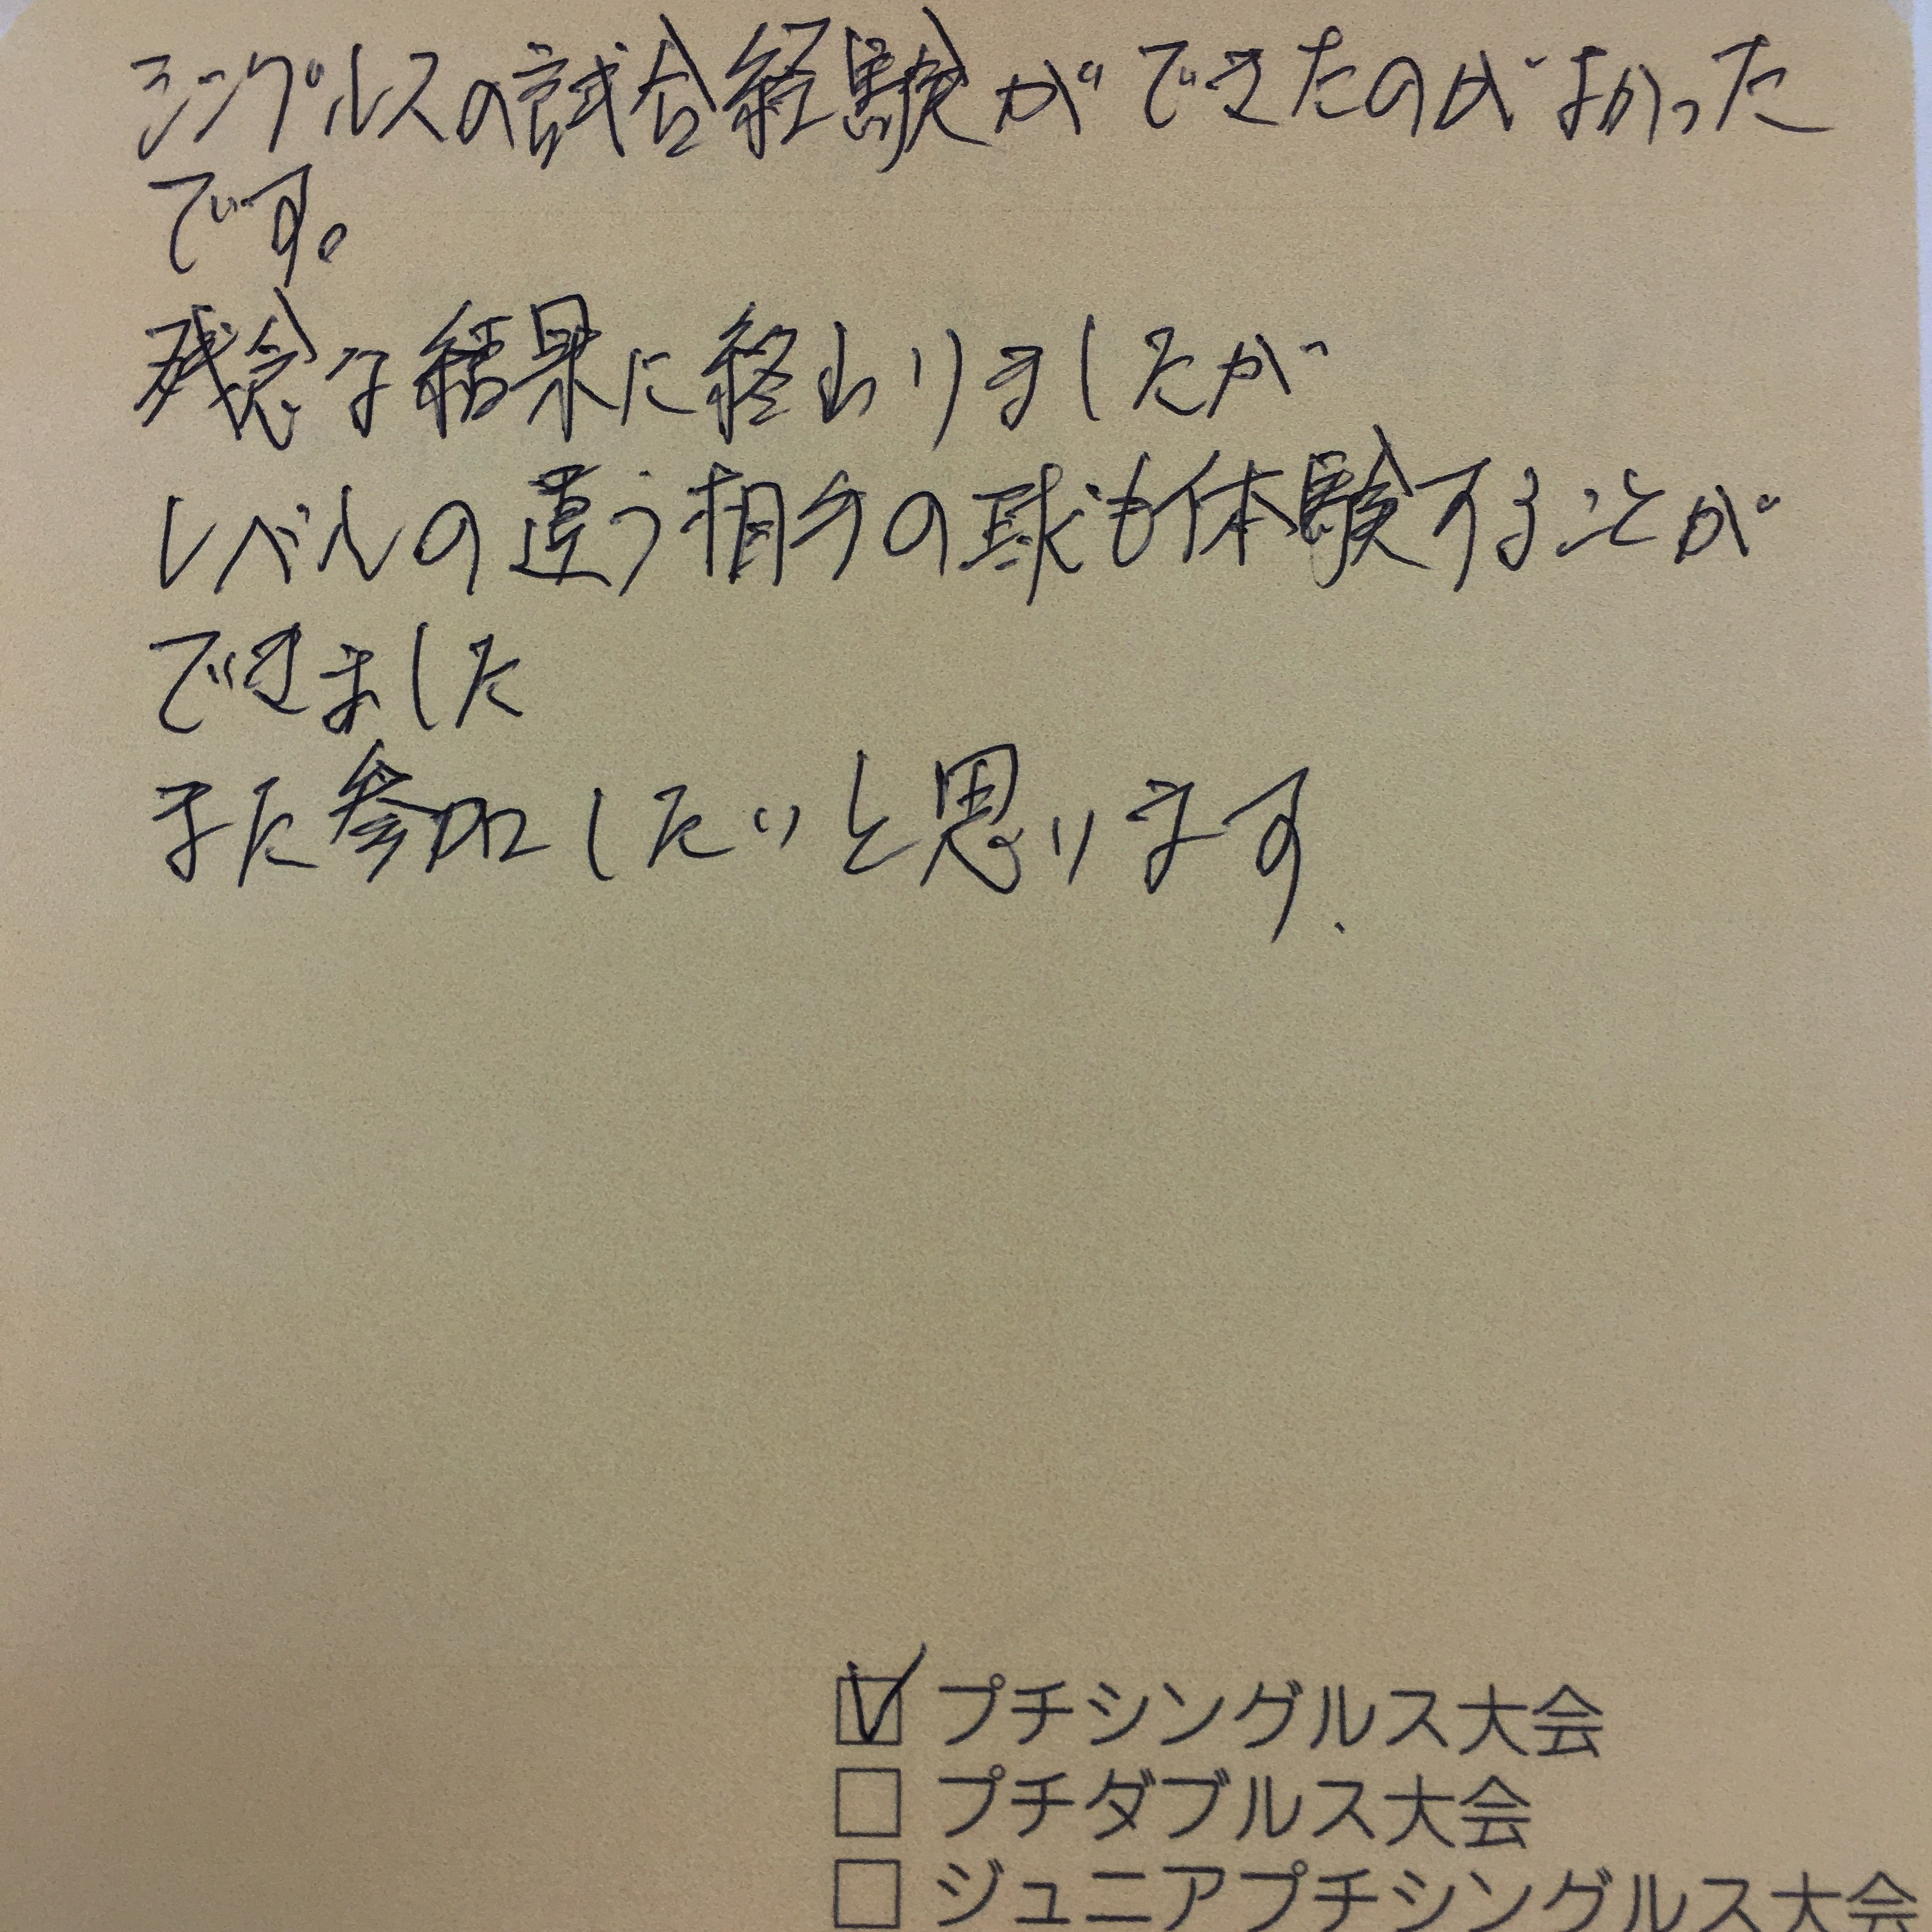 シングルスの試合経験ができたのがよかった
です。
残念な結果に終わりましたが
レベルの違う相手の球も体験することが
できました
また参加したいと思います、
☑ プチシングルス大会
□ プチダブルス大会
□ ジュニアプチシングルス大会